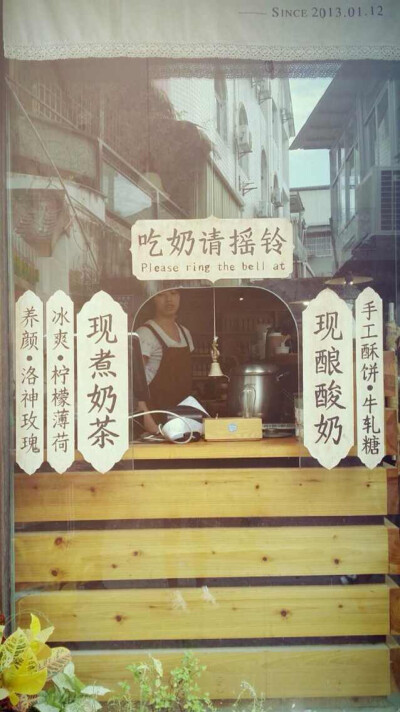 SINCE 2013.01.12
吃奶请摇铃
Please ring the bell at
养颜•洛神玫瑰
冰爽•柠檬薄荷
现煮奶茶
现酿酸奶
手工酥饼•牛轧糖